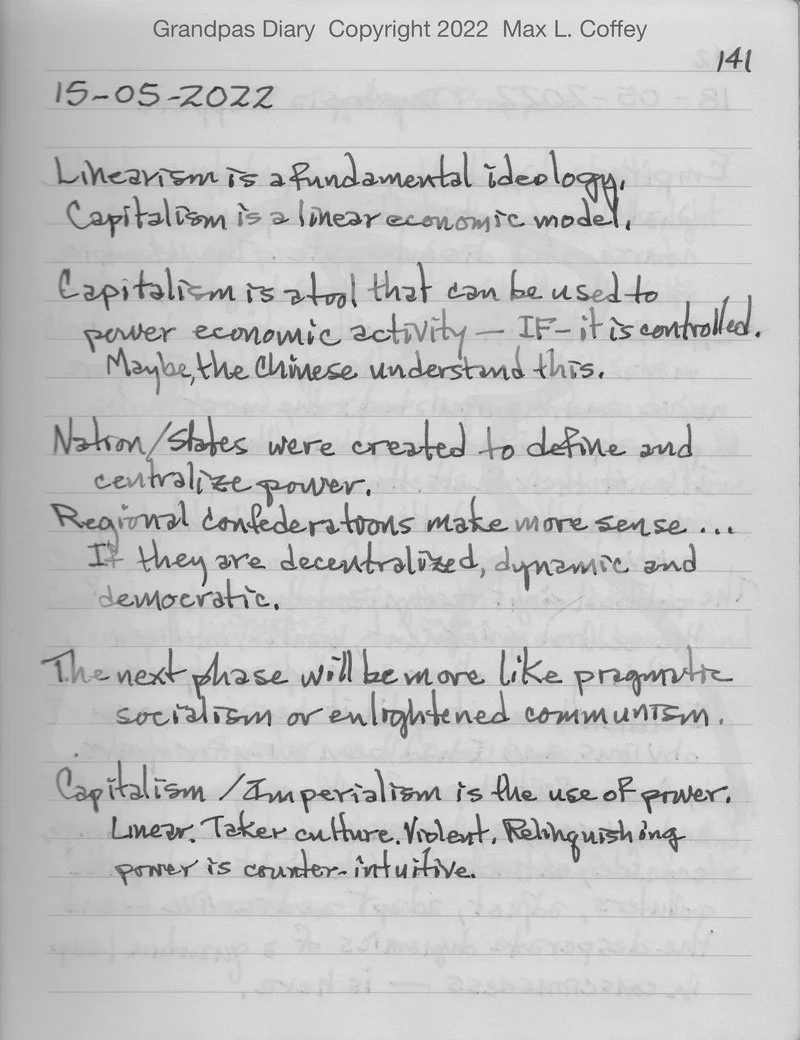 Grandpas Diary Copyright 2022 Max L. Coffey
141
15-05-2022
Linearism is a fundamental ideology.
Capitalism is a linear economic model.
Capitalism is a tool that can be used to
power economic activity — IF — it is controlled.
Maybe, the Chinese understand this.
Nation/States were created to define and
centralize power.
Regional confederatoons make more sense ...
If they are decentralized, dynamic and
democratic.
The next phase will be more like pragmatic
socialism or enlightened communism.
Capitalism / Imperialism is the use of power.
Linear. Taker culture. Violent. Relinquishing
power is counter-intuitive.